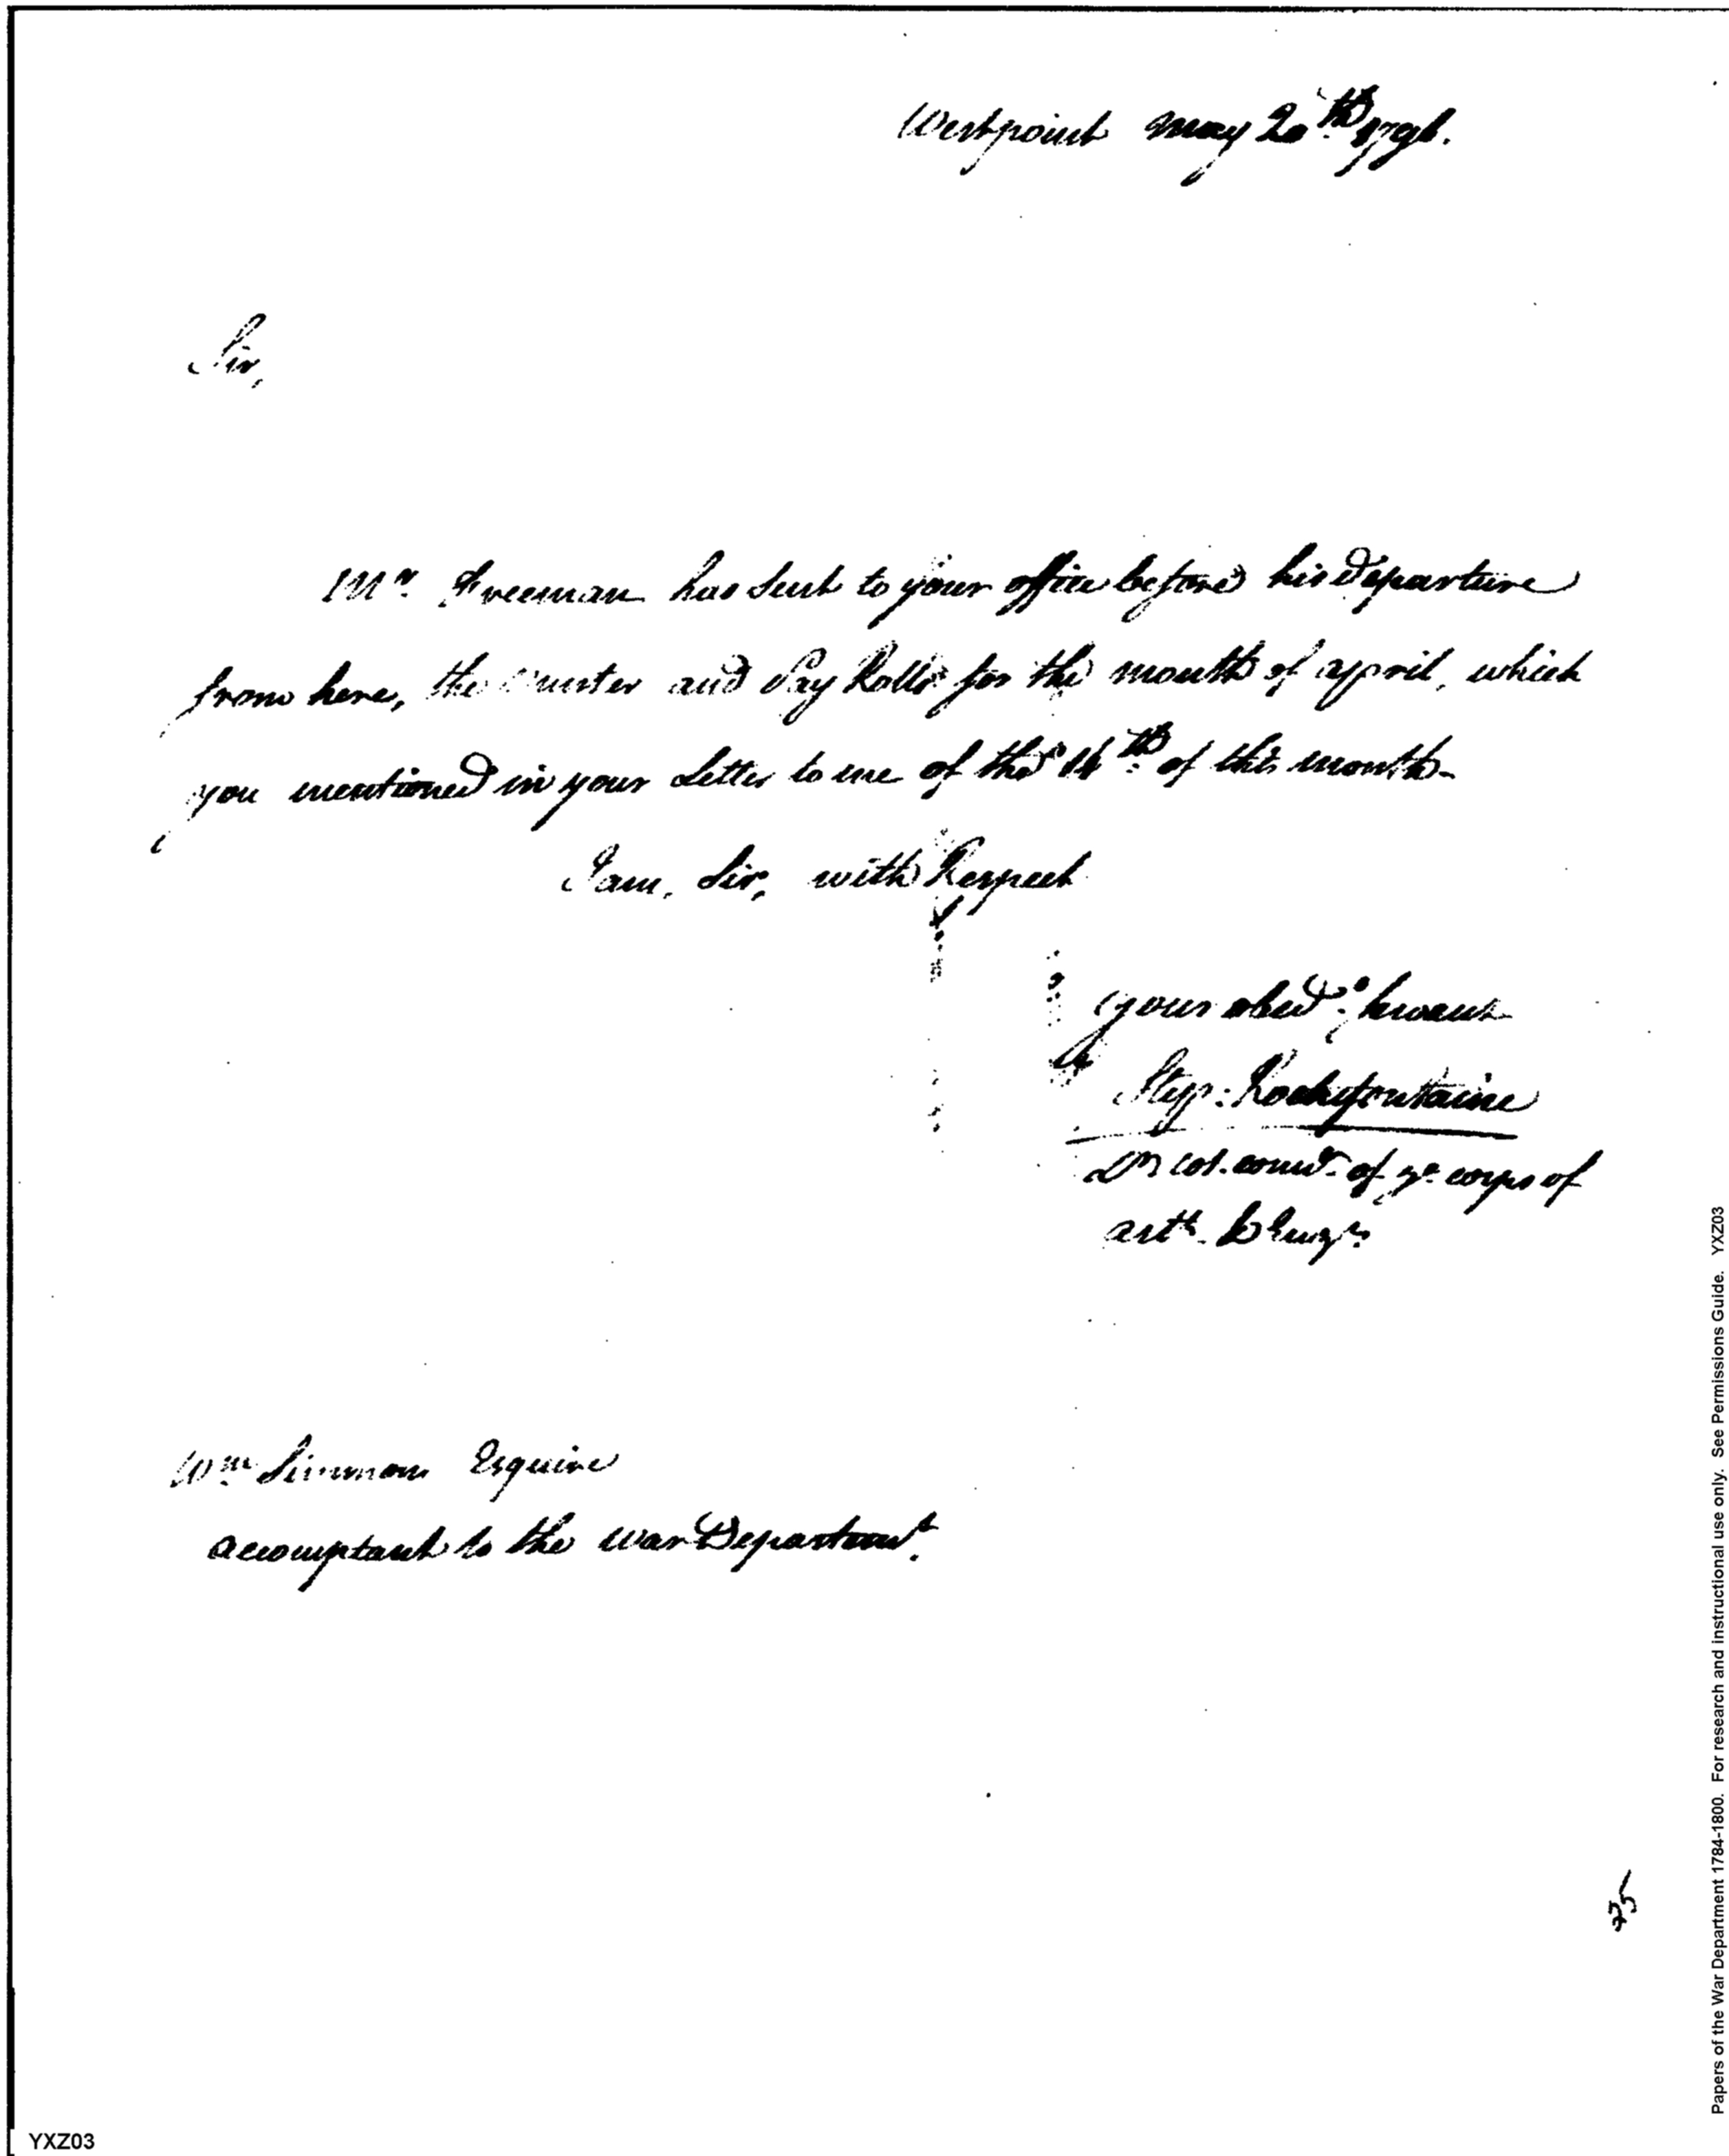 Westpoint may 20th. 1796.
Sir,
Mr. Freeman has sent to your office before his departure
from here, the muster and Pay Rolls for the month of april, which
you mentioned in your Letter to me of the 14th. of this month.
I am, Sir, with Respect
your obedt. servant
Step: Rochefontaine
Lt. col. comdt. of ye. corps of
artt. & Engrs.
Wm. Simmons Esquire
accomptant to the war Departmt.
75
Papers of the War Department 1784-1800. For research and instructional use only. See Permissions Guide. YXZ03
YXZ03